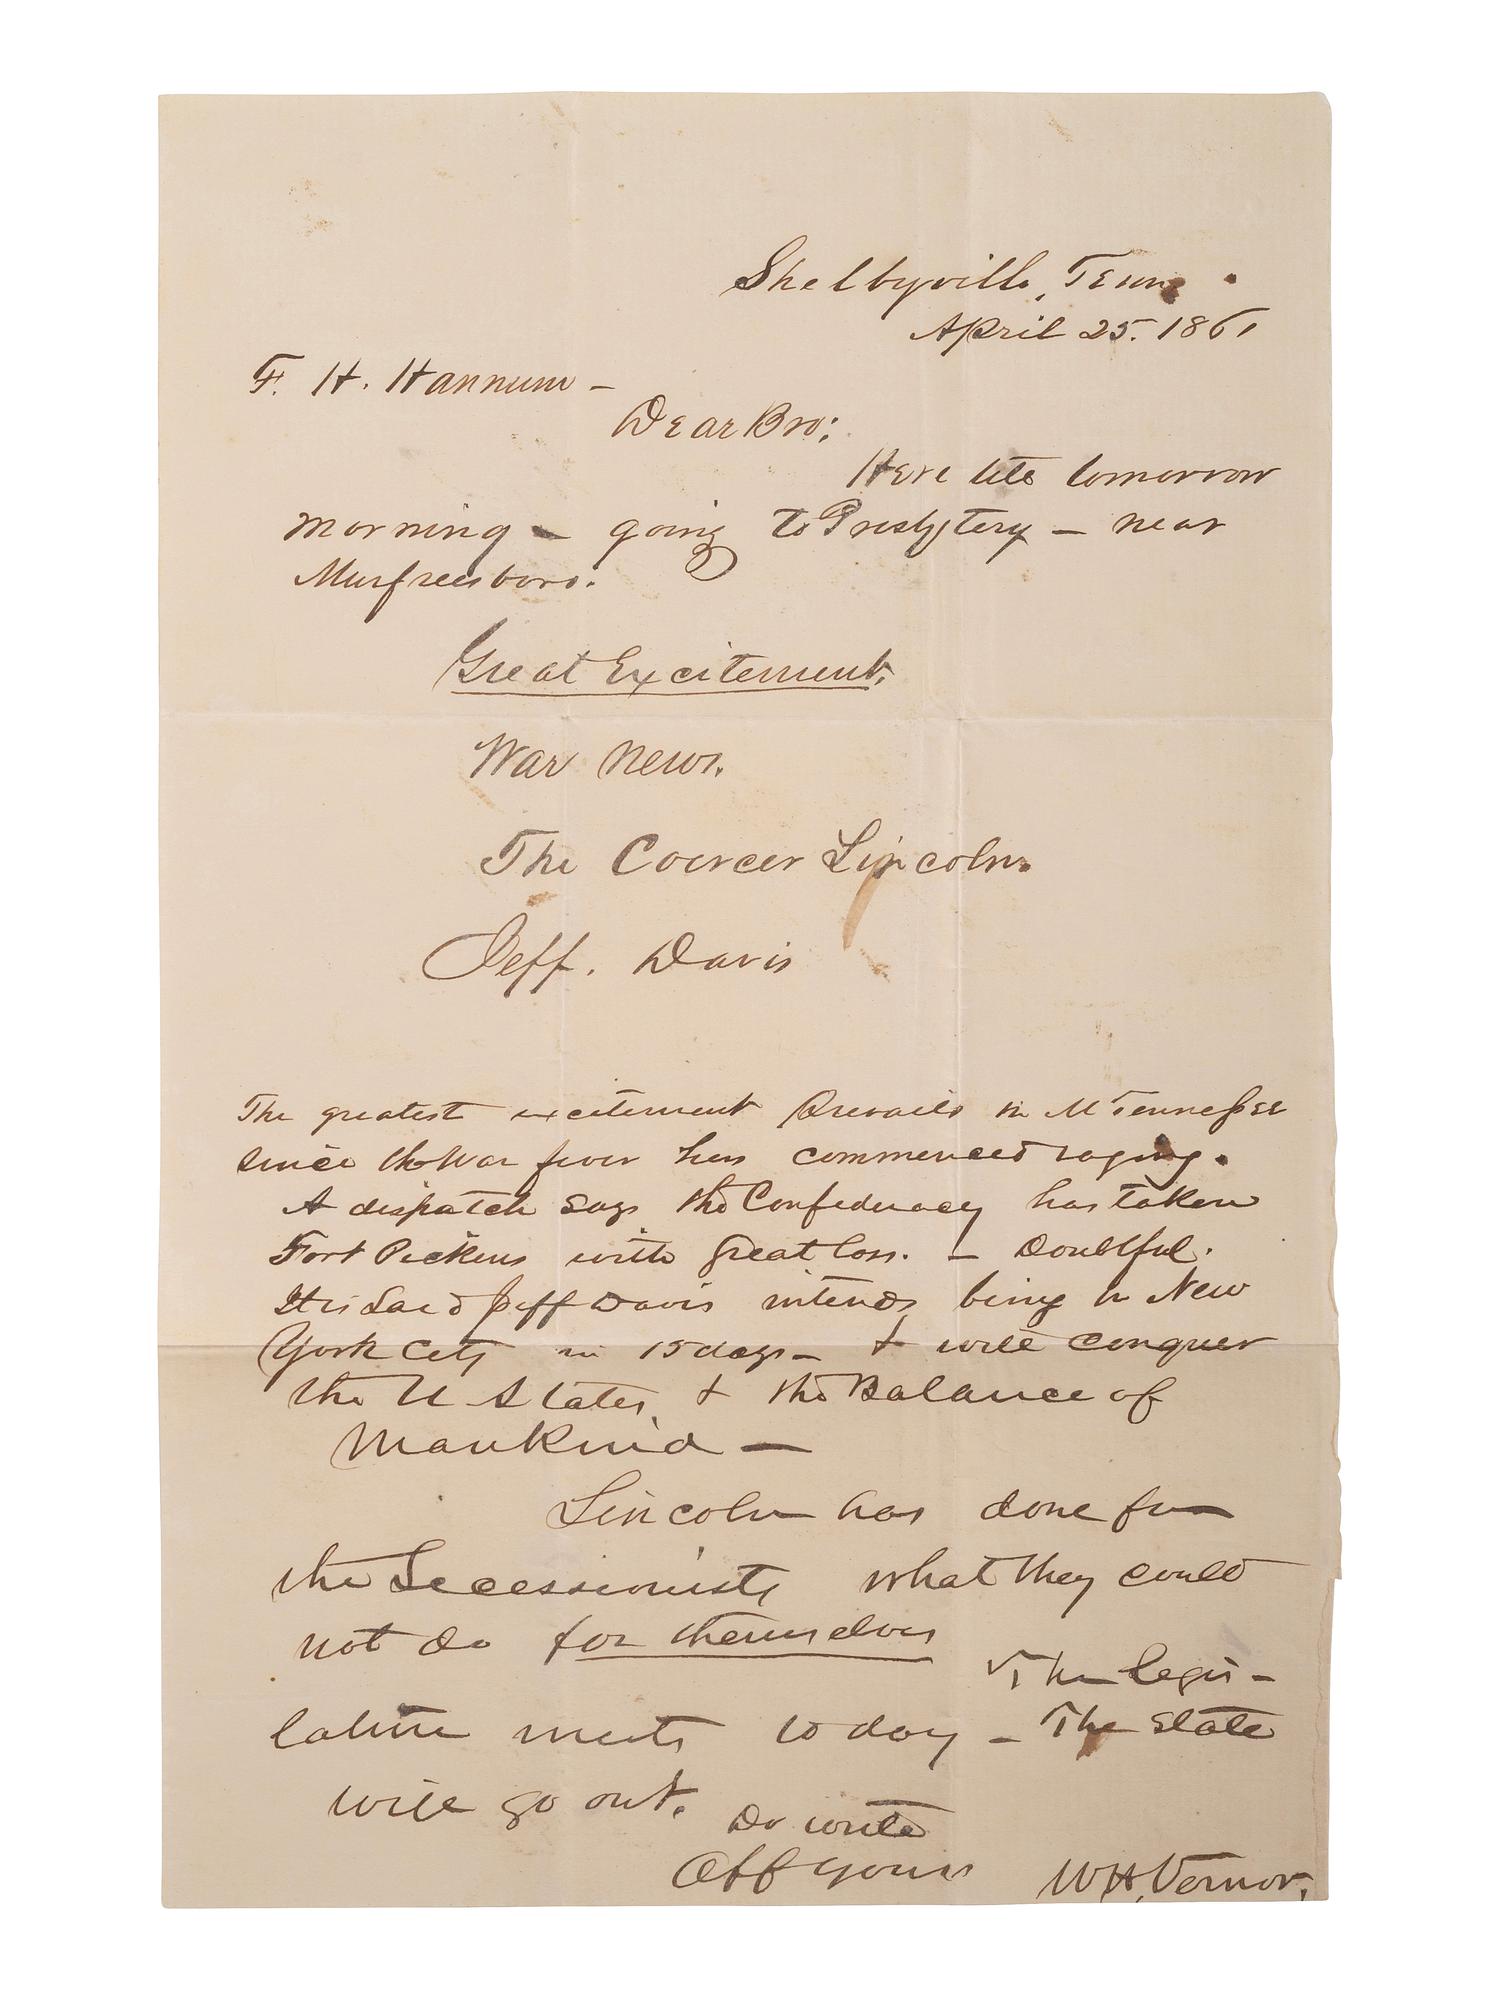 Shelbyville, Tenn.
April 25. 1861
F. H. Hannum -
Dear Bro;
Here till tomorrow
morning - going to Presbytery - near
Murfreesboro.
Great Excitement.
War News.
The Coercer Lincoln.
Jeff. Davis
The greatest excitement prevails in M Tennessee
since the War fever has commenced raging.
A dispatch says the Confederacy has taken
Fort Pickens with great loss. - Doubtful.
It is said Jeff Davis intends being in New
York City in 15 days - & will conquer
the U States, & the Balance of
Mankind -
Lincoln has done for
the Secessionists what they could
not do for themselves
The Legis-
lature meets to day - The State
will go out. Do write
Aff yours W. H. Vernor.